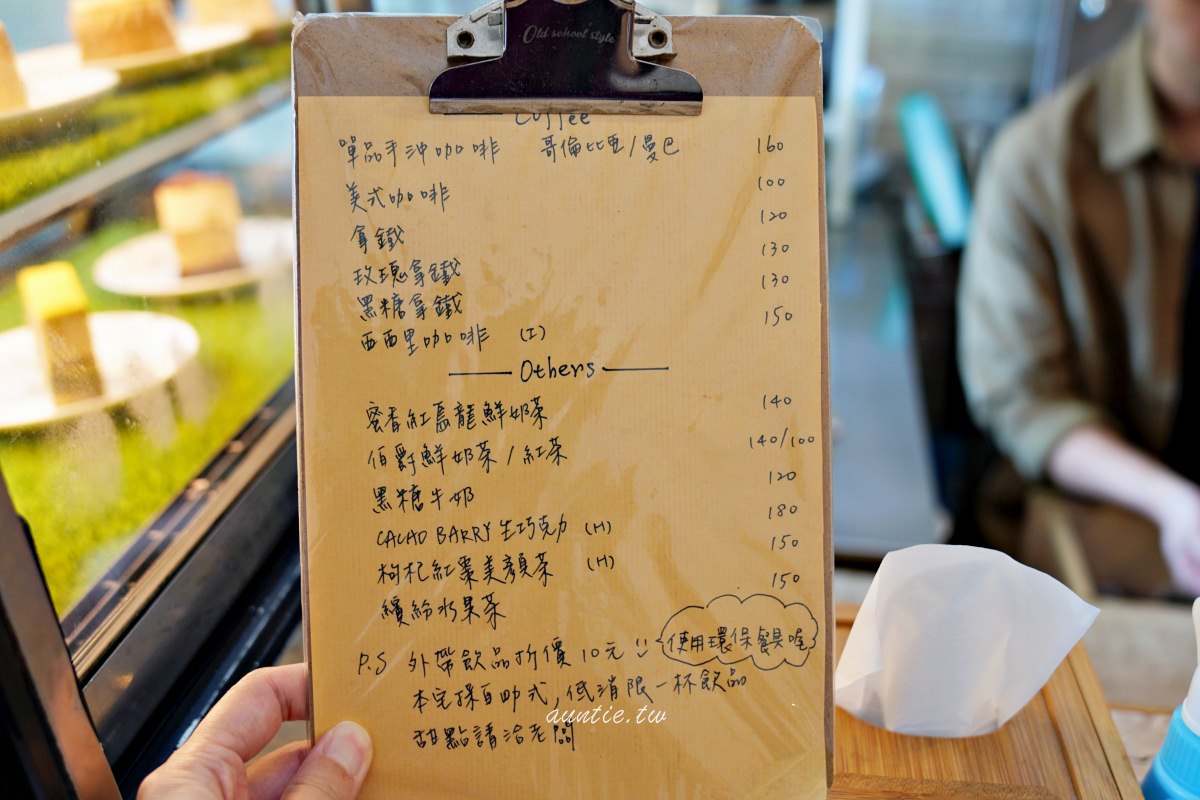 Old school style
Coffee
單品手沖咖啡 哥倫比亞/曼巴 160
美式咖啡 100
拿鐵 120
玫瑰拿鐵 130
黑糖拿鐵 130
西西里咖啡 (I) 150
Others
蜜香紅烏龍鮮奶茶 140
伯爵鮮奶茶/紅茶 140/100
黑糖牛奶 120
CACAO BARRY生巧克力 (H) 180
枸杞紅棗美顏茶 (H) 150
繽紛水果茶 150
P.S 外帶飲品折價10元 使用環保餐具喔
本宅採自助式,低消限一杯飲品
甜點請洽老闆
auntie.tw